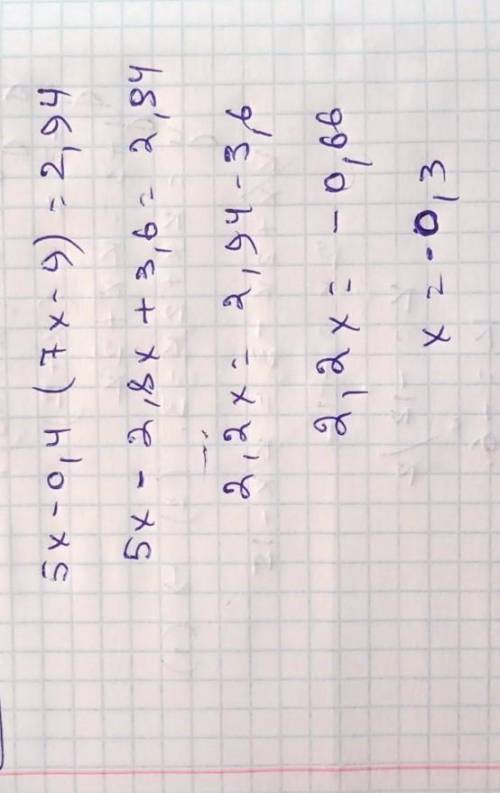 5x - 0,4 (7x - 9) = 2,94
5x - 2,8x + 3,6 = 2,94
2,2x = 2,94 - 3,6
2,2x = - 0,66
x = - 0,3